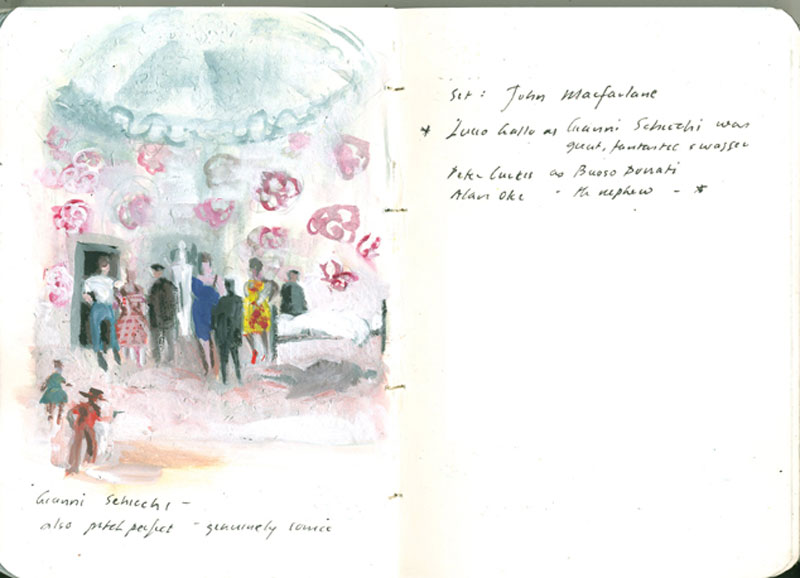 Gianni Schicchi -
also pitch perfect - genuinely comic
Set: John Macfarlane
* Lucio Gallo as Gianni Schicchi was
great, fantastic swagger
Peter Curtis as Buoso Donati
Alan Oke - the nephew - *